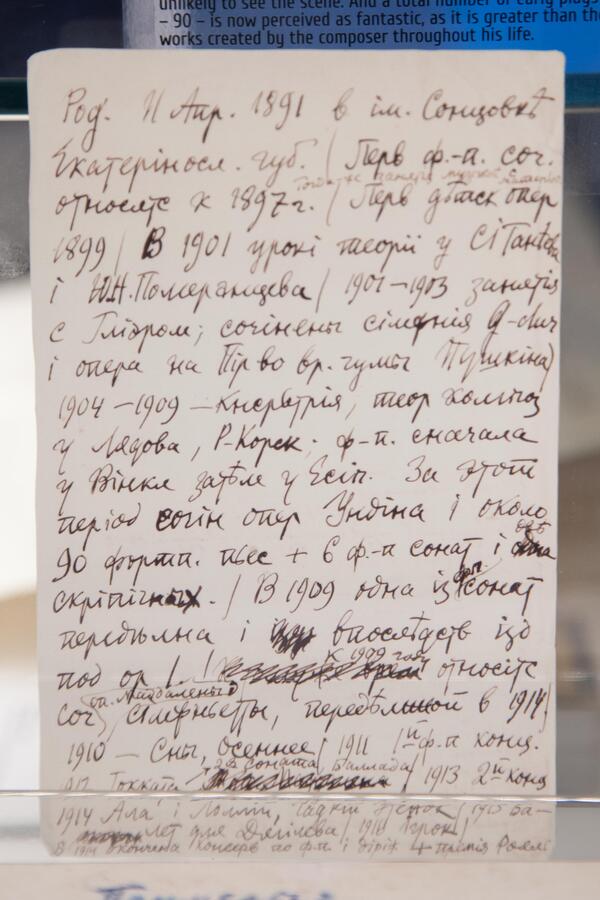 unlikely to see the scene. And a total number of early plays
– 90 – is now perceived as fantastic, as it is greater than the
works created by the composer throughout his life.
Род. 11 Апр. 1891 в ім. Сонцовкѣ
Екатерінося. губ. / Перв ф.-п. соч.
относятс к 1897 г. / Перв дѣтск опер
1899 / В 1901 урокі теоріі у СІТанѣева
і Ю.Н.Померанцева / 1901–1903 занятія
с Гліэром; сочінены сімфнія G-dur
і опера на Пір во вр. чумы Пушкіна)
1904–1909 – Кнсрвтрія, теор композ
у Лядова, Р-Корск. ф-п. сначала
у Вінкл затѣм у Есіп. За этот
період сочін опер Ундіна і около
90 фортп. пьес + 6 ф.-п сонат і
скріпічных. / В 1909 одна із сонат
передѣлна і впослѣдств ізд
под ор 1. / К 1909 году относітс
соч сімфньеты, передѣлной в 1914
1910 – Сны, Осеннее / 1911 1й ф.-п конц.
2я Соната, Баллада
912 Токката / 1913 2й конц
1914 Ала і Лоллій, Гадкій утенок / 1915 Ба-
лет для Дягілева / 1916 Ігрок /
В 1914 окончена консерв по ф.п і діріж + премія Рояль